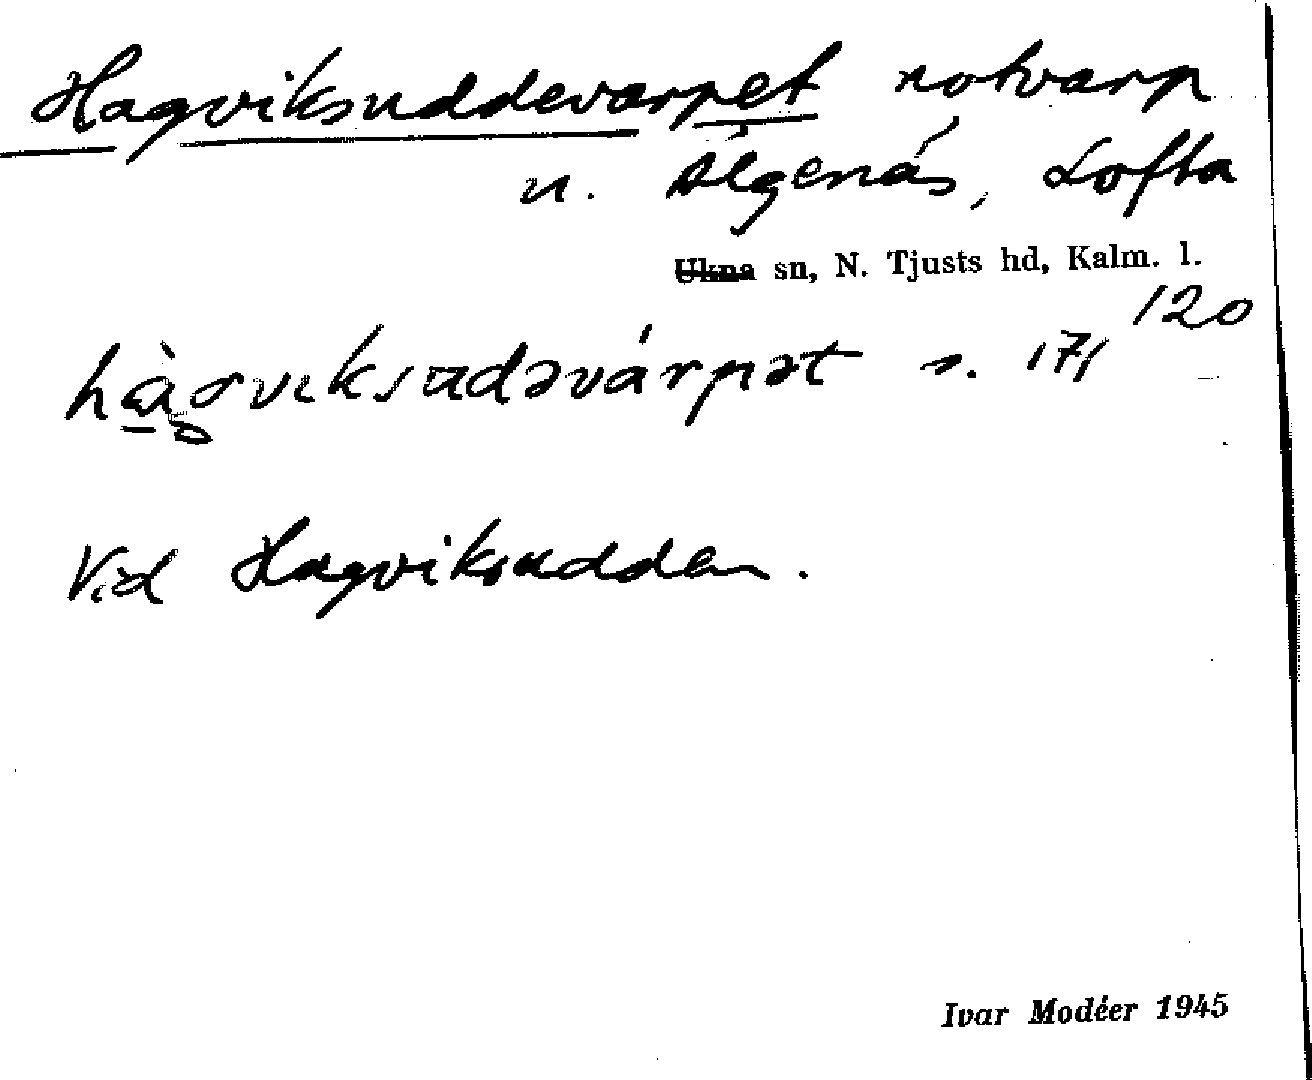 Hagviksuddevarpet notvarp
u. Älgenäs, Lofta
Ukna sn, N. Tjusts hd, Kalm. l.
120
s. 171
Vid Hagviksudden.
Ivar Modéer 1945